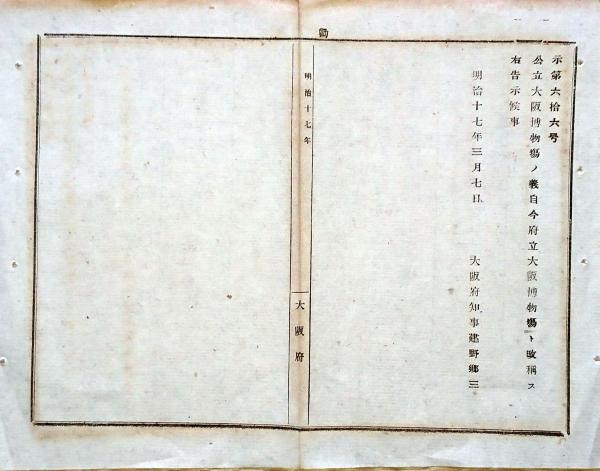 示第六拾六号
公立大阪博物場ノ義自今府立大阪博物場ト改称ス
右告示候事
明治十七年三月七日
大阪府知事建野郷三
勧
明治十七年
大阪府